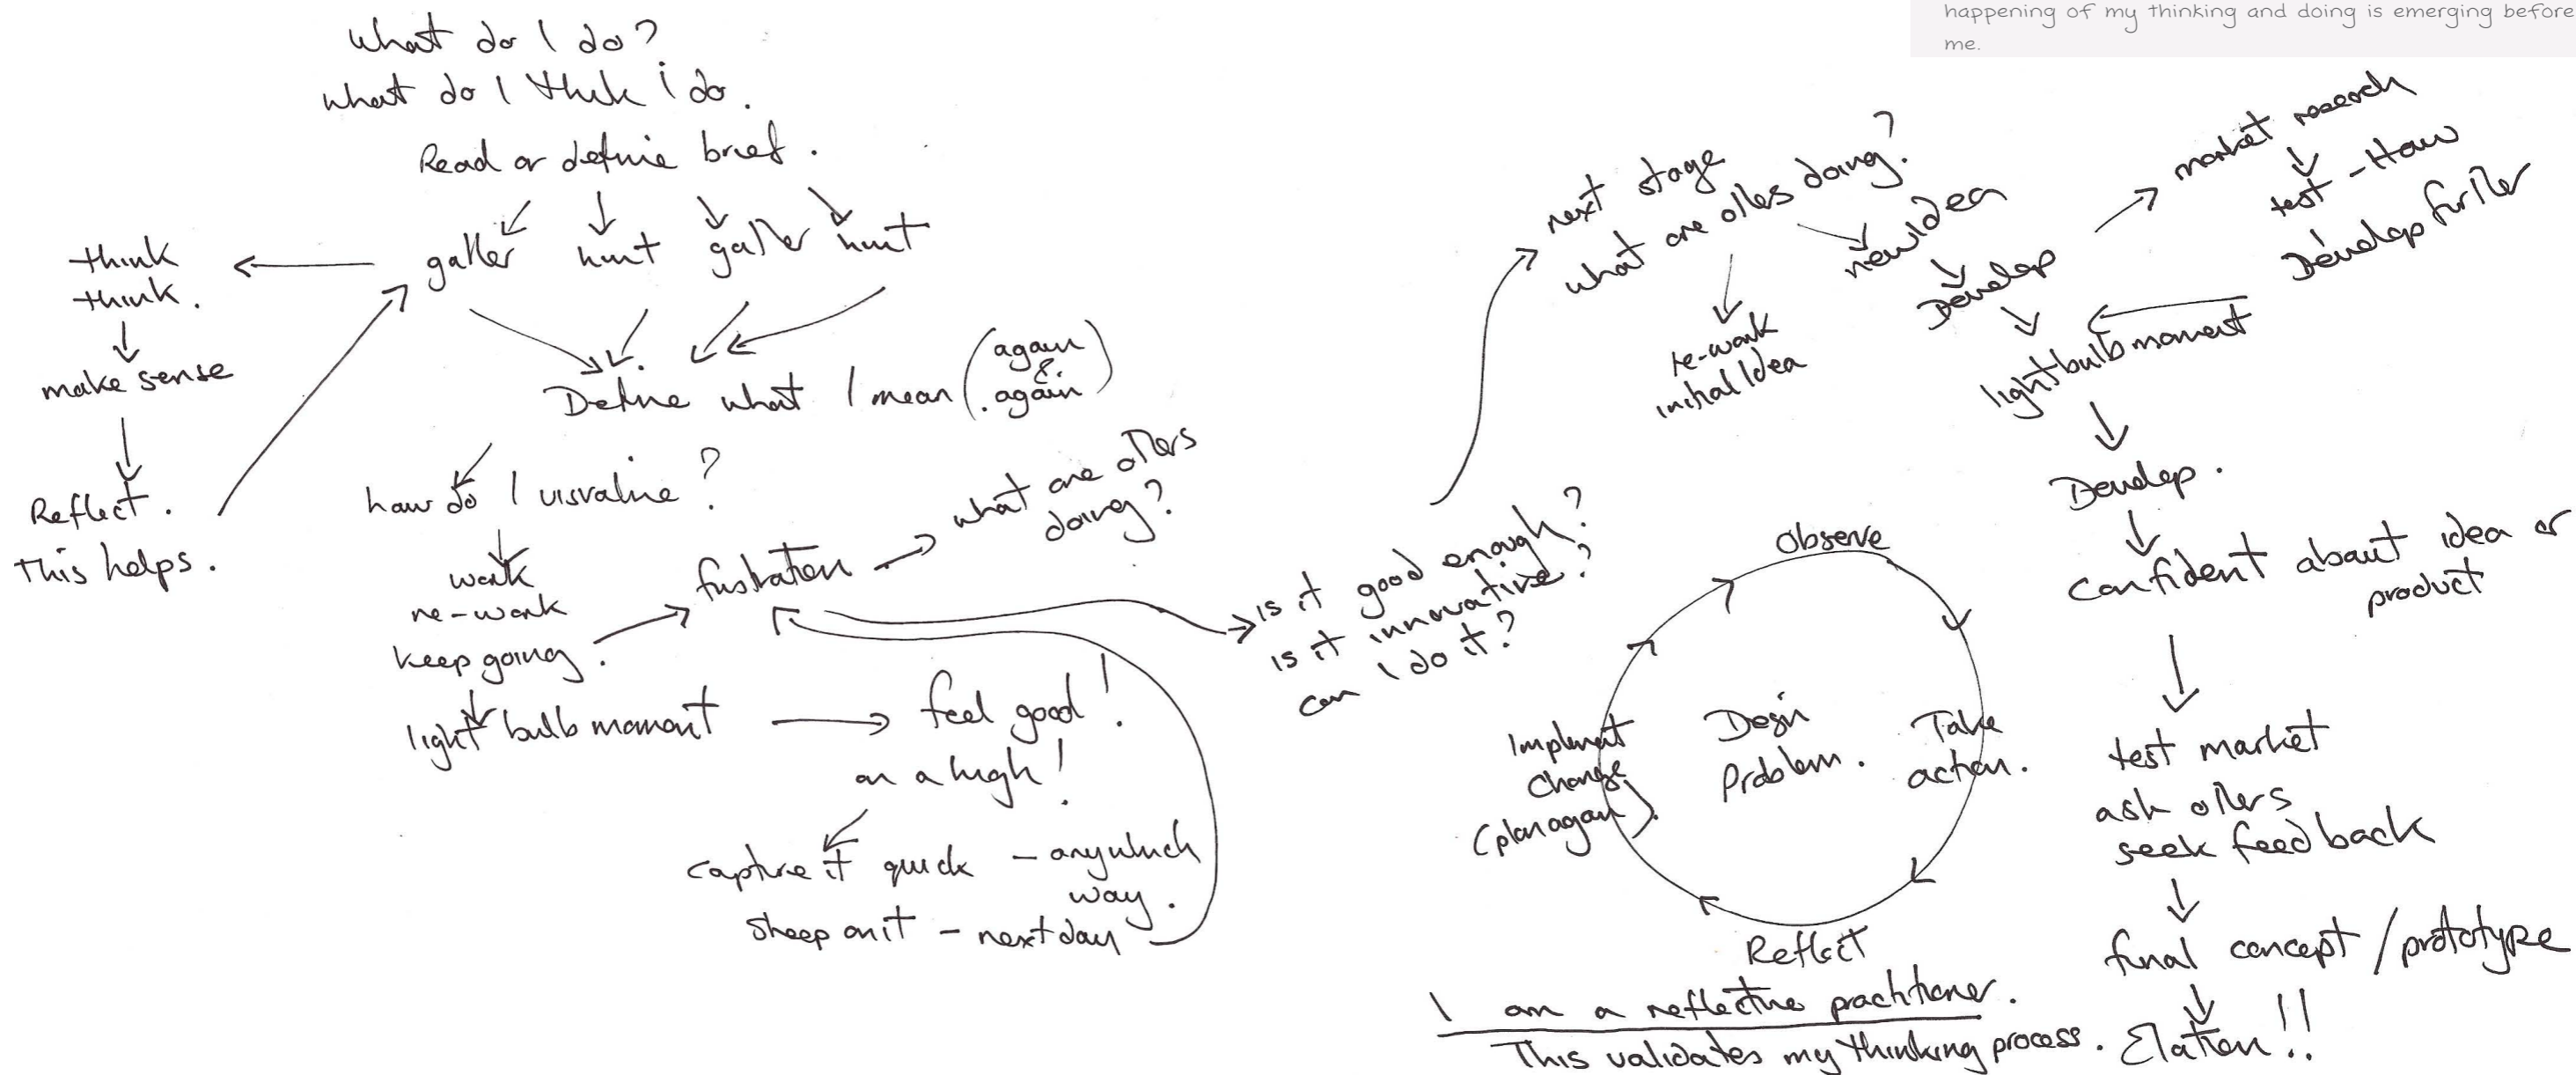 happening of my thinking and doing is emerging before
me.
What do I do?
what do I think i do.
Read or define brief.
gather hunt gather hunt
think
think.
make sense
Reflect.
This helps.
Define what I mean (again
&
again)
how do I visualise?
work
re-work
keep going.
light bulb moment
frustration
what are others
doing?
feel good!
on a high!
capture it quick - any which
way.
Sleep on it - next day
is it good enough?
is it innovative?
can I do it?
next stage
what are others doing?
re-work
initial Idea
new Idea
Develop
market research
test - How
Develop further
lightbulb moment
Develop.
Confident about idea or
product
test market
ask others
seek feedback
final concept / prototype
Elation!!
Observe
Take
action.
Reflect
Implement
Change
(plan again).
Design
Problem.
I am a reflective practitioner.
This validates my thinking process.